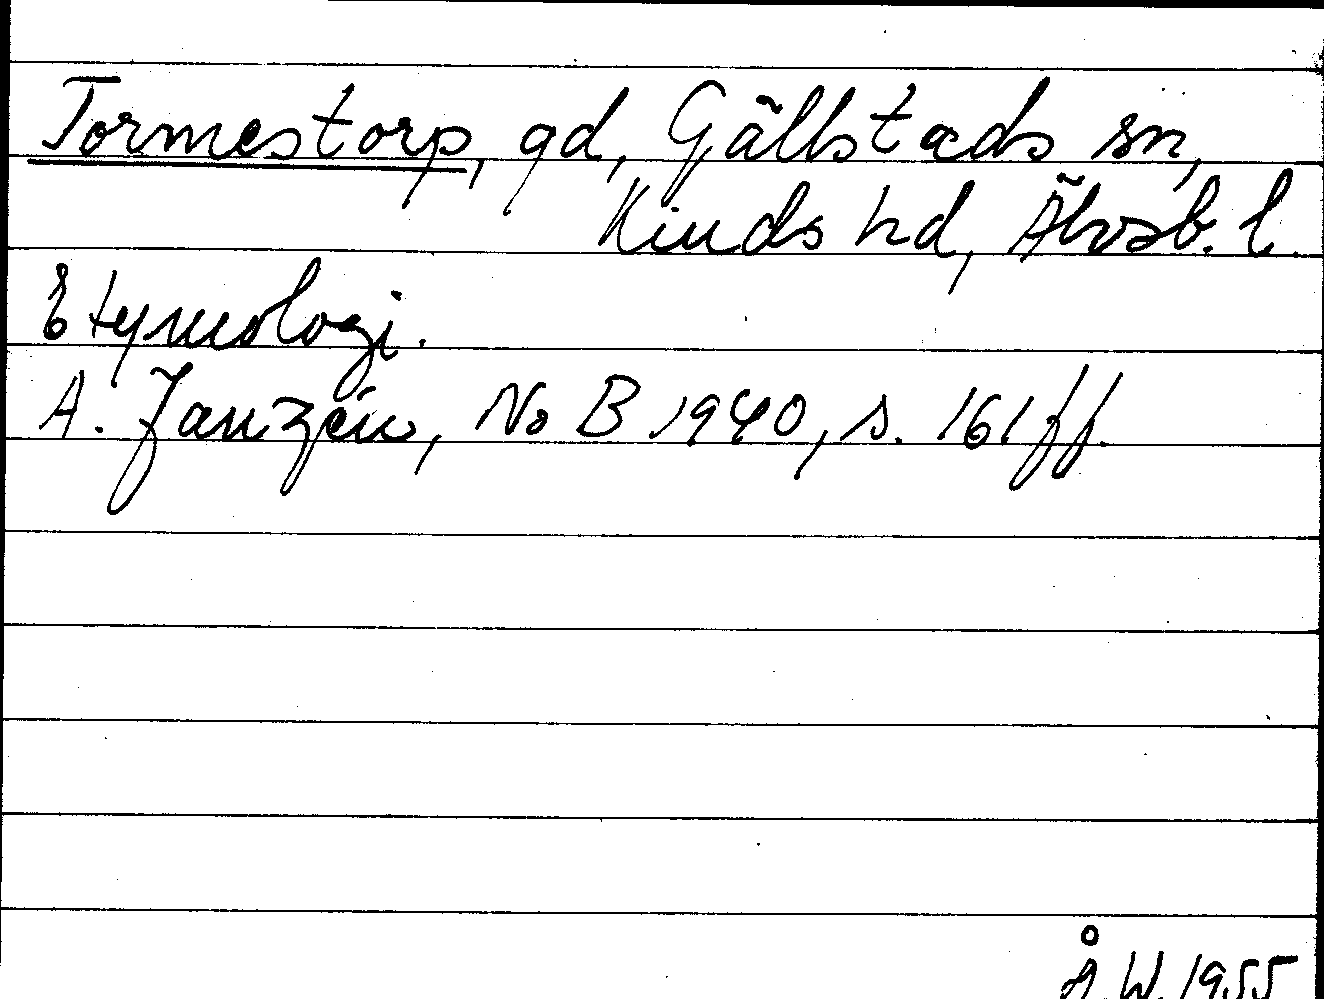 Tormestorp, gd, Gällstads sn,
Kinds hd, Älvsb. l.
Etymologi.
A. Janzén, No B 1940, s. 161 ff.
Å.W. 1955